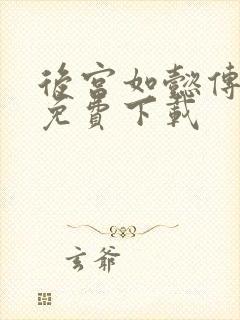 後宮如懿傳
免費下載
玄爺